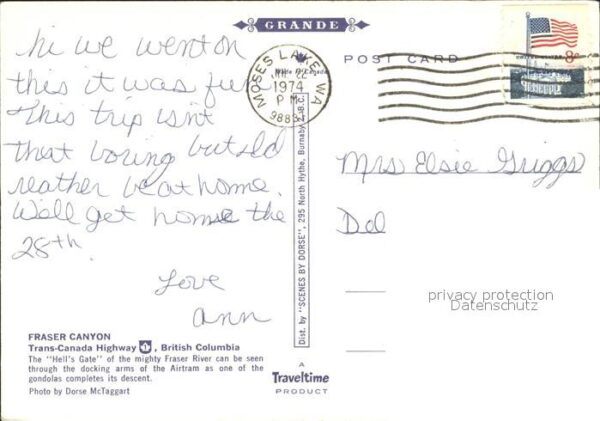 GRANDE
hi we went on
this it was fu
This trip isn't
that boring but Id
reather be at home.
Well get home the
28th.
Love
Ann
FRASER CANYON
Trans-Canada Highway 1, British Columbia
The "Hell's Gate" of the mighty Fraser River can be seen
through the docking arms of the Airtram as one of the
gondolas completes its descent.
Photo by Dorse McTaggart
Made in Canada
Dist. by "SCENES BY DORSE", 295 North Hythe, Burnaby, B.C.
A
Traveltime
PRODUCT
POST CARD
MOSES LAKE, WA
22
1974
PM
9883
8c
Mrs Elsie Griggs
privacy protection
Datenschutz